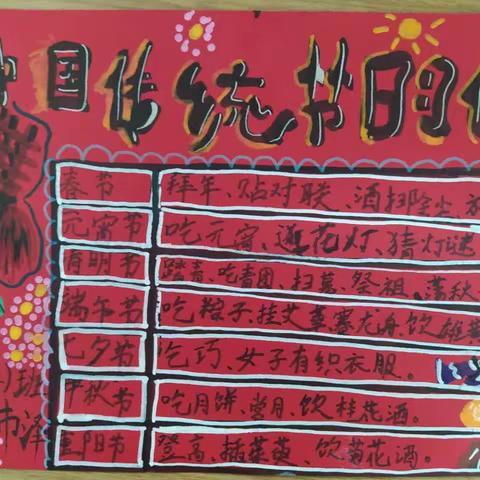 中国传统节日的
春节 拜年、贴对联、洒扫除尘、
元宵节 吃元宵、逛花灯、猜灯谜
清明节 踏青、吃青团、扫墓、祭祖、荡秋
端午节 吃粽子、挂艾草、赛龙舟、饮雄黄
七夕节 乞巧、女子有织衣服。
中秋节 吃月饼、赏月、饮桂花酒。
重阳节 登高、插茱萸、饮菊花酒。
班
泽